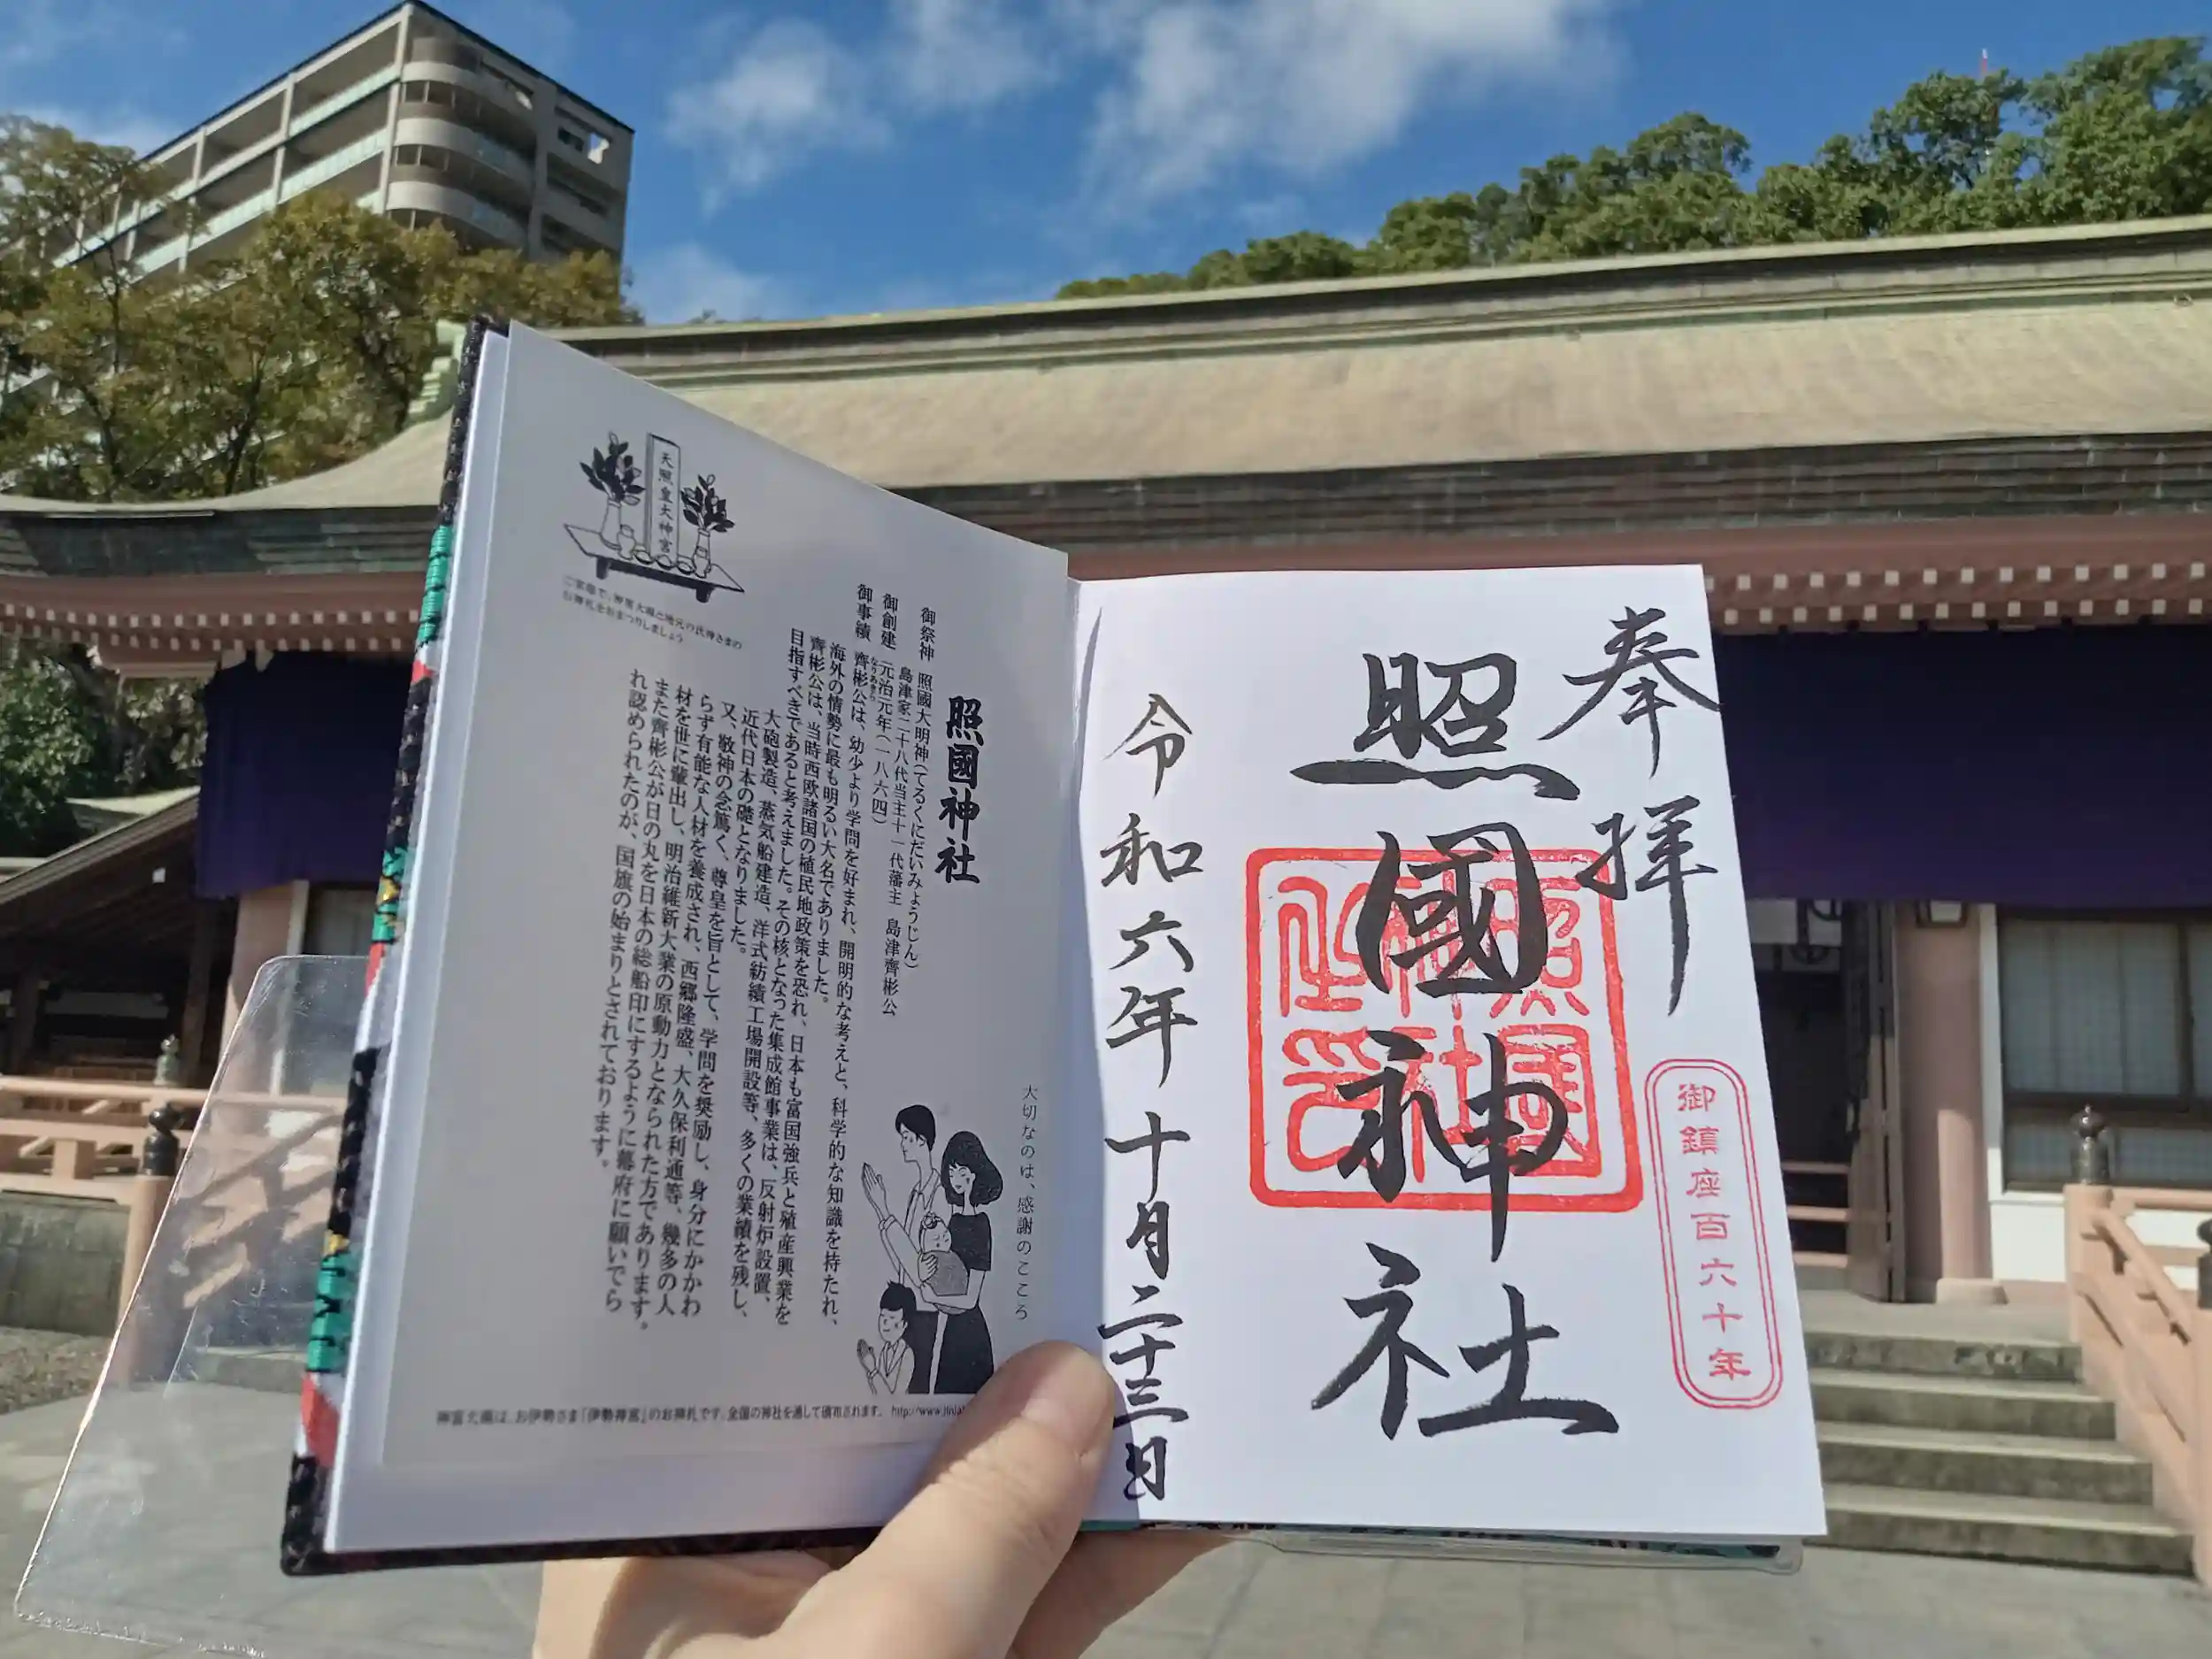 奉拝
照國神社
令和六年十月二十三日
御鎮座百六十年
照國神社印
天照皇大神宮
ご家庭で、神宮大麻と地元の氏神さまの
お神札をおまつりしましょう
大切なのは、感謝のこころ
照國神社
御祭神 照國大明神(てるくにだいみょうじん)
島津家二十八代当主十一代藩主 島津齊彬公
御創建 元治元年(一八六四)
御事績 齊彬公は、幼少より学問を好まれ、開明的な考えと、科学的な知識を持たれ、
なりあきら
海外の情勢に最も明るい大名でありました。
齊彬公は、当時西欧諸国の植民地政策を恐れ、日本も富国強兵と殖産興業を
目指すべきであると考えました。その核となった集成館事業は、反射炉設置、
大砲製造、蒸気船建造、洋式紡績工場開設等、多くの業績を残し、
近代日本の礎となりました。
又、敬神の念篤く、尊皇を旨として、学問を奨励し、身分にかかわ
らず有能な人材を養成され、西郷隆盛、大久保利通等、幾多の人
材を世に輩出し、明治維新大業の原動力となられた方であります。
また齊彬公が日の丸を日本の総船印にするように幕府に願いでら
れ認められたのが、国旗の始まりとされております。
神宮大麻は、お伊勢さま「伊勢神宮」のお神札です。全国の神社を通して頒布されます。 http://www.jinja